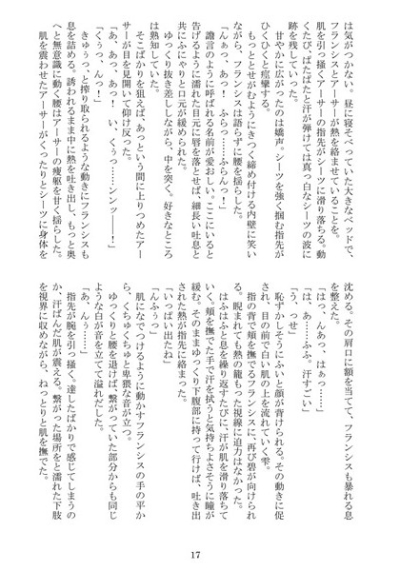 は気がつかない。昼に寝そべっていた大きなベッドで、
フランシスとアーサーが熱を絡ませていることを。
肌を引っ掻くアーサーの指先がシーツに滑り落ちる。動
くたび、ぱたぱたと汗が弾けては真っ白なシーツの波に
跡を残していった。
甘やかに広がったのは嬌声。シーツを強く掴む指先が
ひくひくと痙攣する。
もっととせがむようにきつく締め付ける内壁に笑い
ながら、フランシスは語らずに腰を揺らした。
「んぁっ、あっ……ふら……ふらんっ！」
譫言のように呼ばれる名前が愛おしい。ここにいると
告げるように濡れた目元に唇を落とせば、細長い吐息と
共にふにゃりと口元が緩められた。
ゆっくり抜き差ししながら、中を突く。好きなところ
は熟知していた。
そこばかりを狙えば、あっという間に上りつめたアー
サーが目を見開いて仰け反った。
「あ、あっ、あっ！　い、くぅっ……シンッ――！」
「くぅっ、んっ」
きゅぅっ、と搾り取られるような動きにフランシスも
息を詰める。誘われるままに熱を吐き出し、もっと奥
へと無意識に動く腰はアーサーの痩躯を甘く揺らした。
肌を震わせたアーサーがくったりとシーツに身体を
沈める。その肩に額を当てて、フランシスも暴れる息
を整えた。
「はっ、んあっ、はぁっ……」
「は、あ……ふふ、汗すごい」
「う、っせ」
恥ずかしそうにふいと顔が背けられる。その動きに促
され、目の前で白い肌の上を流れていく雫。
指の背で頬を撫でるフランシスに、再び碧が向けられ
る。睨まれても熱の籠もった視線に迫力はなかった。
はふはふと息を繰り返すたびに、汗が肌を滑り落ちて
いく。頬を撫でた手で汗を拭うと気持ちよさそうに瞳が
緩む。そのままゆっくり下腹部に持って行けば、吐き出
された熱が指先に絡まった。
「いっぱい出たね」
「んふぅっ」
肌になでつけるように動かすフランシスの手の平か
ら、くちゅくちゅと卑猥な音が立つ。
ゆっくりと腰を退けば、繋がっていた部分からも同じ
ような白が音を立てて溢れだした。
「あ、んぅ……」
指先が腕を引っ掻く。達したばかりで感じてしまうの
か、汗ばんだ肌が震える。繋がった場所と濡れた下肢
を視界に収めながら、ねっとりと肌を撫でた。
17